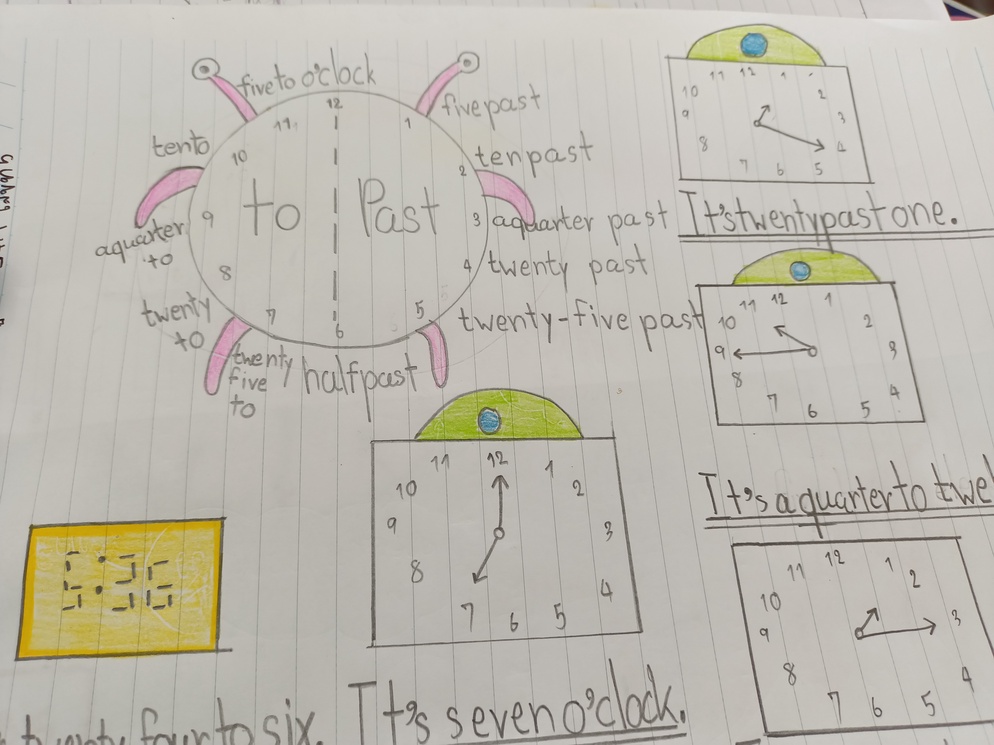 five to o'clock
five past
ten past
a quarter past
twenty past
twenty-five past
half past
twenty
five
to
twenty
to
a quarter
to
ten to
to
Past
12
1
2
3
4
5
6
7
8
9
10
11
11 12 1
10 2
9 3
8 4
7 6 5
It's twenty past one.
11 12 1
10 2
9 3
8 4
7 6 5
It's a quarter to twel
11 12 1
10 2
9 3
8 4
7 6 5
It's seven o'clock.
12 1
11 2
10 3
9
8 4
7 6 5
5:36
four to six.